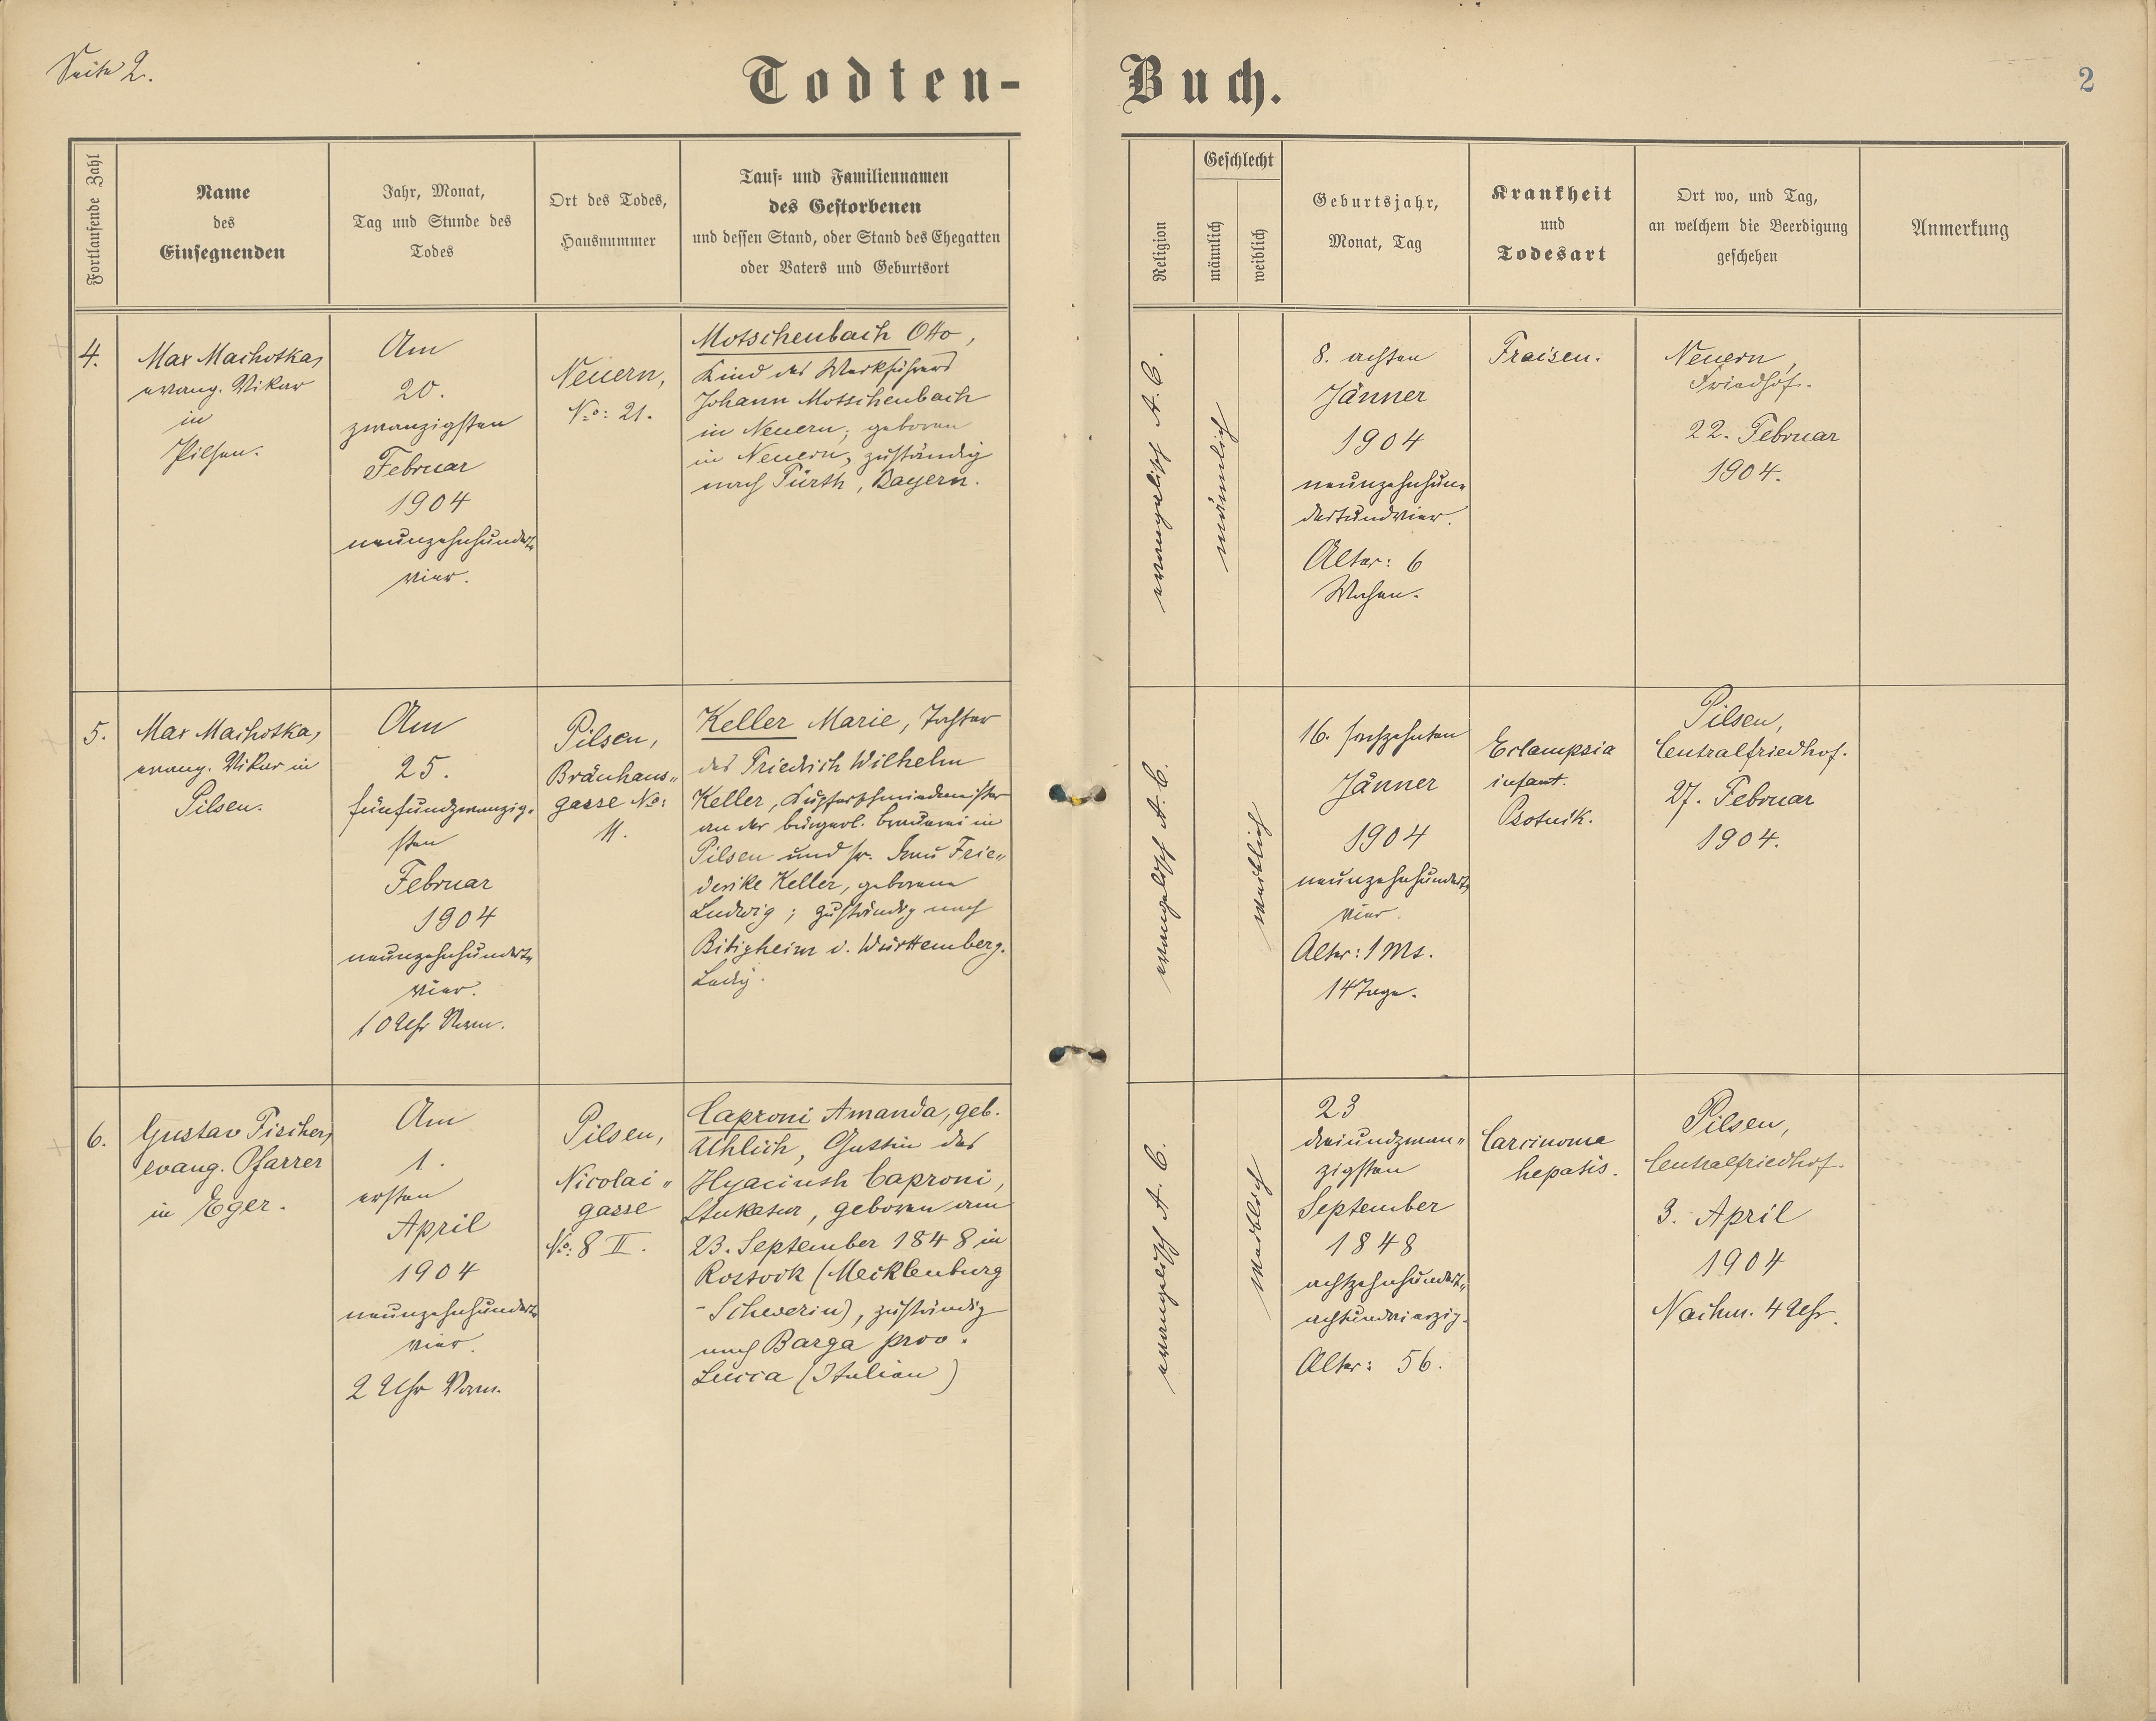 Seite 2.
Todten-Buch.
2
Fortlaufende Zahl
Name
des
Einsegnenden
Jahr, Monat,
Tag und Stunde des
Todes
Ort des Todes,
Hausnummer
Tauf- und Familiennamen
des Gestorbenen
und dessen Stand, oder Stand des Ehegatten
oder Vaters und Geburtsort
Religion
Geschlecht
männlich
weiblich
Geburtsjahr,
Monat, Tag
Krankheit
und
Todesart
Ort wo, und Tag,
an welchem die Beerdigung
geschehen
Anmerkung
4.
Max Machotka,
evang. Vikar
in
Pilsen.
Am
20.
zwanzigsten
Februar
1904
neunzehnhundert„
vier.
Neuern,
No: 21.
Motschenbach Otto,
Kind des Werkführers
Johann Motschenbach
in Neuern; geboren
in Neuern, zuständig
nach Fürth, Bayern.
evangelisch A. C.
männlich
8. achten
Jänner
1904
neunzehnhun„
dertundvier.
Alter: 6
Wochen.
Fraisen.
Neuern,
Friedhof.
22. Februar
1904.
5.
Max Machotka,
evang. Vikar in
Pilsen.
Am
25.
fünfundzwanzig„
sten
Februar
1904
neunzehnhundert„
vier.
10 Uhr Vorm.
Pilsen,
Bräuhaus„
gasse No:
11.
Keller Marie, Tochter
des Friedrich Wilhelm
Keller, Kupferschmiedmeister
an der bürgerl. Brauerei in
Pilsen und sr. Frau Frie„
derike Keller, geborene
Ludwig; zuständig nach
Bitigheim i. Württemberg.
Ledig.
evangelisch A. C.
weiblich
16. sechzehnten
Jänner
1904
neunzehnhundert„
vier.
Alter: 1 Mt.
14 Tage.
Eclampsia
infant.
Psotnik.
Pilsen,
Centralfriedhof.
27. Februar
1904.
6.
Gustav Fischer,
evang. Pfarrer
in Eger.
Am
1.
ersten
April
1904
neunzehnhundert„
vier.
2 Uhr Vorm.
Pilsen,
Nicolai„
gasse
No: 8 II.
Caproni Amanda, geb.
Uhlich, Gattin des
Hyacinth Caproni,
Stukateur, geboren am
23. September 1848 in
Rostock (Mecklenburg
-Schwerin), zuständig
nach Barga prov.
Lucca (Italien)
evangelisch A. C.
weiblich
23
dreiundzwan„
zigsten
September
1848
achtzehnhundert„
achtundvierzig.
Alter: 56.
Carcinoma
hepatis.
Pilsen,
Centralfriedhof.
3. April
1904
Nachm. 4 Uhr.